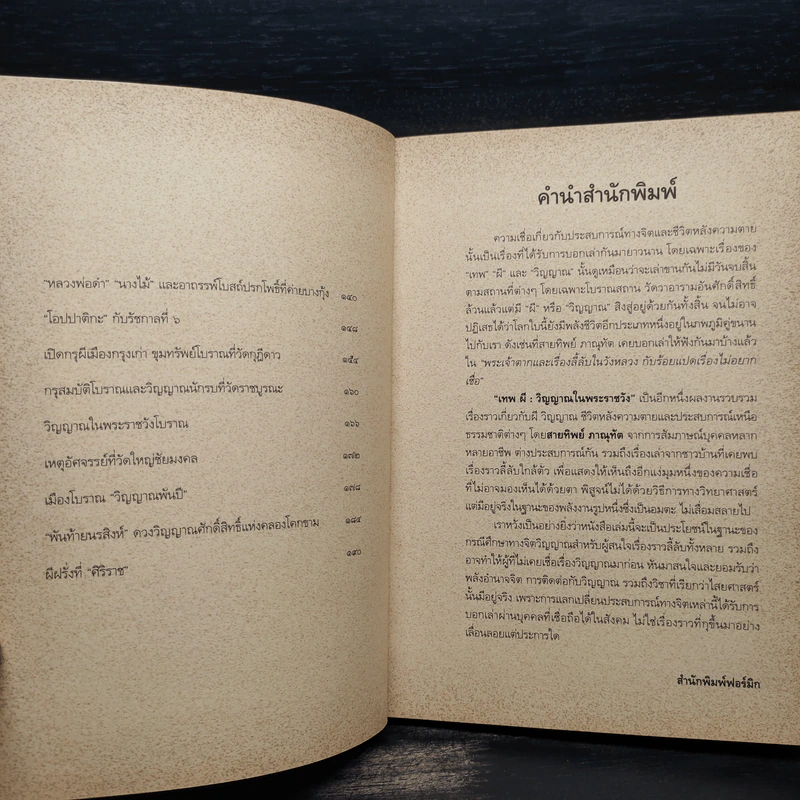 "หลวงพ่อดำ" "นางไม้" และอาถรรพ์โบสถ์ปรกโพธิ์ที่ค่ายบางกุ้ง ๑๔๐
"โอปปาติกะ" กับรัชกาลที่ ๖ ๑๔๘
เปิดกรุผีเมืองกรุงเก่า ขุมทรัพย์โบราณที่วัดกุฎีดาว ๑๕๔
กรุสมบัติโบราณและวิญญาณนักรบที่วัดราชบูรณะ ๑๖๐
วิญญาณในพระราชวังโบราณ ๑๖๖
เหตุอัศจรรย์ที่วัดใหญ่ชัยมงคล ๑๗๒
เมืองโบราณ "วิญญาณพันปี" ๑๗๘
"พันท้ายนรสิงห์" ดวงวิญญาณศักดิ์สิทธิ์แห่งคลองโคกขาม ๑๘๔
ผีฝรั่งที่ "ศิริราช" ๑๙๐
คำนำสำนักพิมพ์
ความเชื่อเกี่ยวกับประสบการณ์ทางจิตและชีวิตหลังความตาย
นั้นเป็นเรื่องที่ได้รับการบอกเล่ากันมายาวนาน โดยเฉพาะเรื่องของ
"เทพ" "ผี" และ "วิญญาณ" นั้นดูเหมือนว่าจะเล่าขานกันไม่มีวันจบสิ้น
ตามสถานที่ต่างๆ โดยเฉพาะโบราณสถาน วัดวาอารามอันศักดิ์สิทธิ์
ล้วนแล้วแต่มี "ผี" หรือ "วิญญาณ" สิงสู่อยู่ด้วยกันทั้งสิ้น จนไม่อาจ
ปฏิเสธได้ว่าโลกใบนี้ยังมีพลังชีวิตอีกประเภทหนึ่งอยู่ในภพภูมิคู่ขนาน
ไปกับเรา ดังเช่นที่สายทิพย์ ภาณุทัต เคยบอกเล่าให้ฟังกันมาบ้างแล้ว
ใน "พระเจ้าตากและเรื่องลี้ลับในวังหลวง กับร้อยแปดเรื่องไม่อยาก
เชื่อ"
"เทพ ผี : วิญญาณในพระราชวัง" เป็นอีกหนึ่งผลงานรวบรวม
เรื่องราวเกี่ยวกับผี วิญญาณ ชีวิตหลังความตายและประสบการณ์เหนือ
ธรรมชาติต่างๆ โดยสายทิพย์ ภาณุทัต จากการสัมภาษณ์บุคคลหลาก
หลายอาชีพ ต่างประสบการณ์กัน รวมถึงเรื่องเล่าจากชาวบ้านที่เคยพบ
เรื่องราวลี้ลับใกล้ตัว เพื่อแสดงให้เห็นถึงอีกแง่มุมหนึ่งของความเชื่อ
ที่ไม่อาจมองเห็นได้ด้วยตา พิสูจน์ไม่ได้ด้วยวิธีการทางวิทยาศาสตร์
แต่มีอยู่จริงในฐานะของพลังงานรูปหนึ่งซึ่งเป็นอมตะ ไม่เสื่อมสลายไป
เราหวังเป็นอย่างยิ่งว่าหนังสือเล่มนี้จะเป็นประโยชน์ในฐานะของ
กรณีศึกษาทางจิตวิญญาณสำหรับผู้สนใจเรื่องราวลี้ลับทั้งหลาย รวมถึง
อาจทำให้ผู้ที่ไม่เคยเชื่อเรื่องวิญญาณมาก่อน หันมาสนใจและยอมรับว่า
พลังอำนาจจิต การติดต่อกับวิญญาณ รวมถึงวิชาที่เรียกว่าไสยศาสตร์
นั้นมีอยู่จริง เพราะการแลกเปลี่ยนประสบการณ์ทางจิตเหล่านี้ได้รับการ
บอกเล่าผ่านบุคคลที่เชื่อถือได้ในสังคม ไม่ใช่เรื่องราวที่กุขึ้นมาอย่าง
เลื่อนลอยแต่ประการใด
สำนักพิมพ์ฟอร์มิก